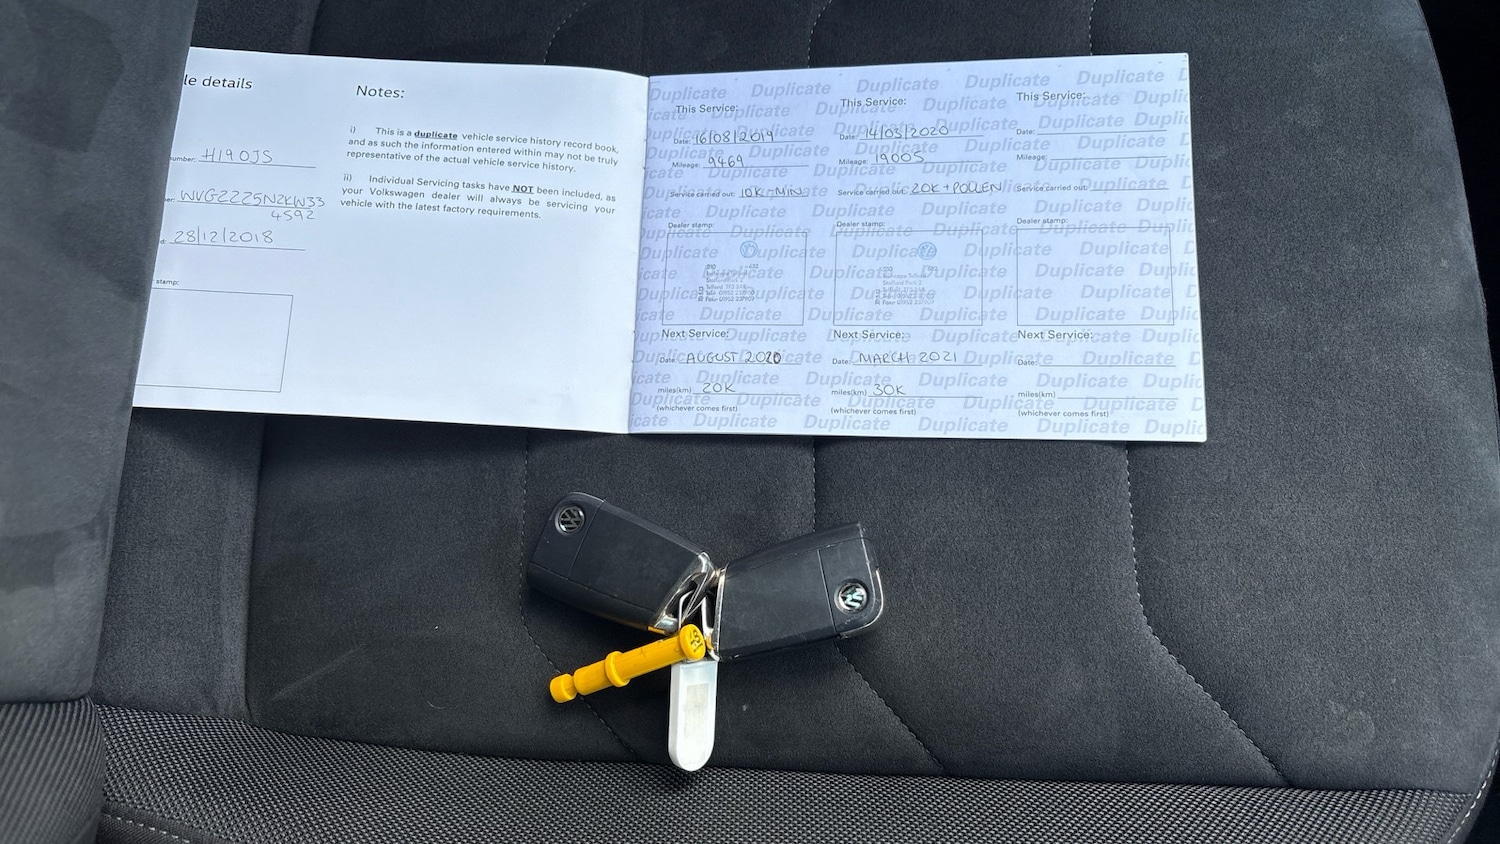 le details
umber: H190JS
er: WVGZZZ5NZKW33
4592
28/12/2018
stamp:
Notes:
i) This is a duplicate vehicle service history record book,
and as such the information entered within may not be truly
representative of the actual vehicle service history.
ii) Individual Servicing tasks have NOT been included, as
your Volkswagen dealer will always be servicing your
vehicle with the latest factory requirements.
Duplicate Duplicate Duplicate Duplicate Duplicate
This Service:
Date: 16/08/2019
Mileage: 9469
Service carried out: 10K-MIN
Dealer stamp:
Telford TF3
Tel: 01952
Fax: 01952
Next Service:
Date: AUGUST 2020
miles(km) 20K
(whichever comes first)
This Service:
Date: 14/03/2020
Mileage: 19005
Service carried out: 20K + POLLEN
Dealer stamp:
Stafford Park 2
Telford TF3
Fax: 01952
Next Service:
Date: MARCH 2021
miles(km) 30K
(whichever comes first)
This Service:
Date:
Mileage:
Service carried out:
Dealer stamp:
Next Service:
Date:
miles(km)
(whichever comes first)